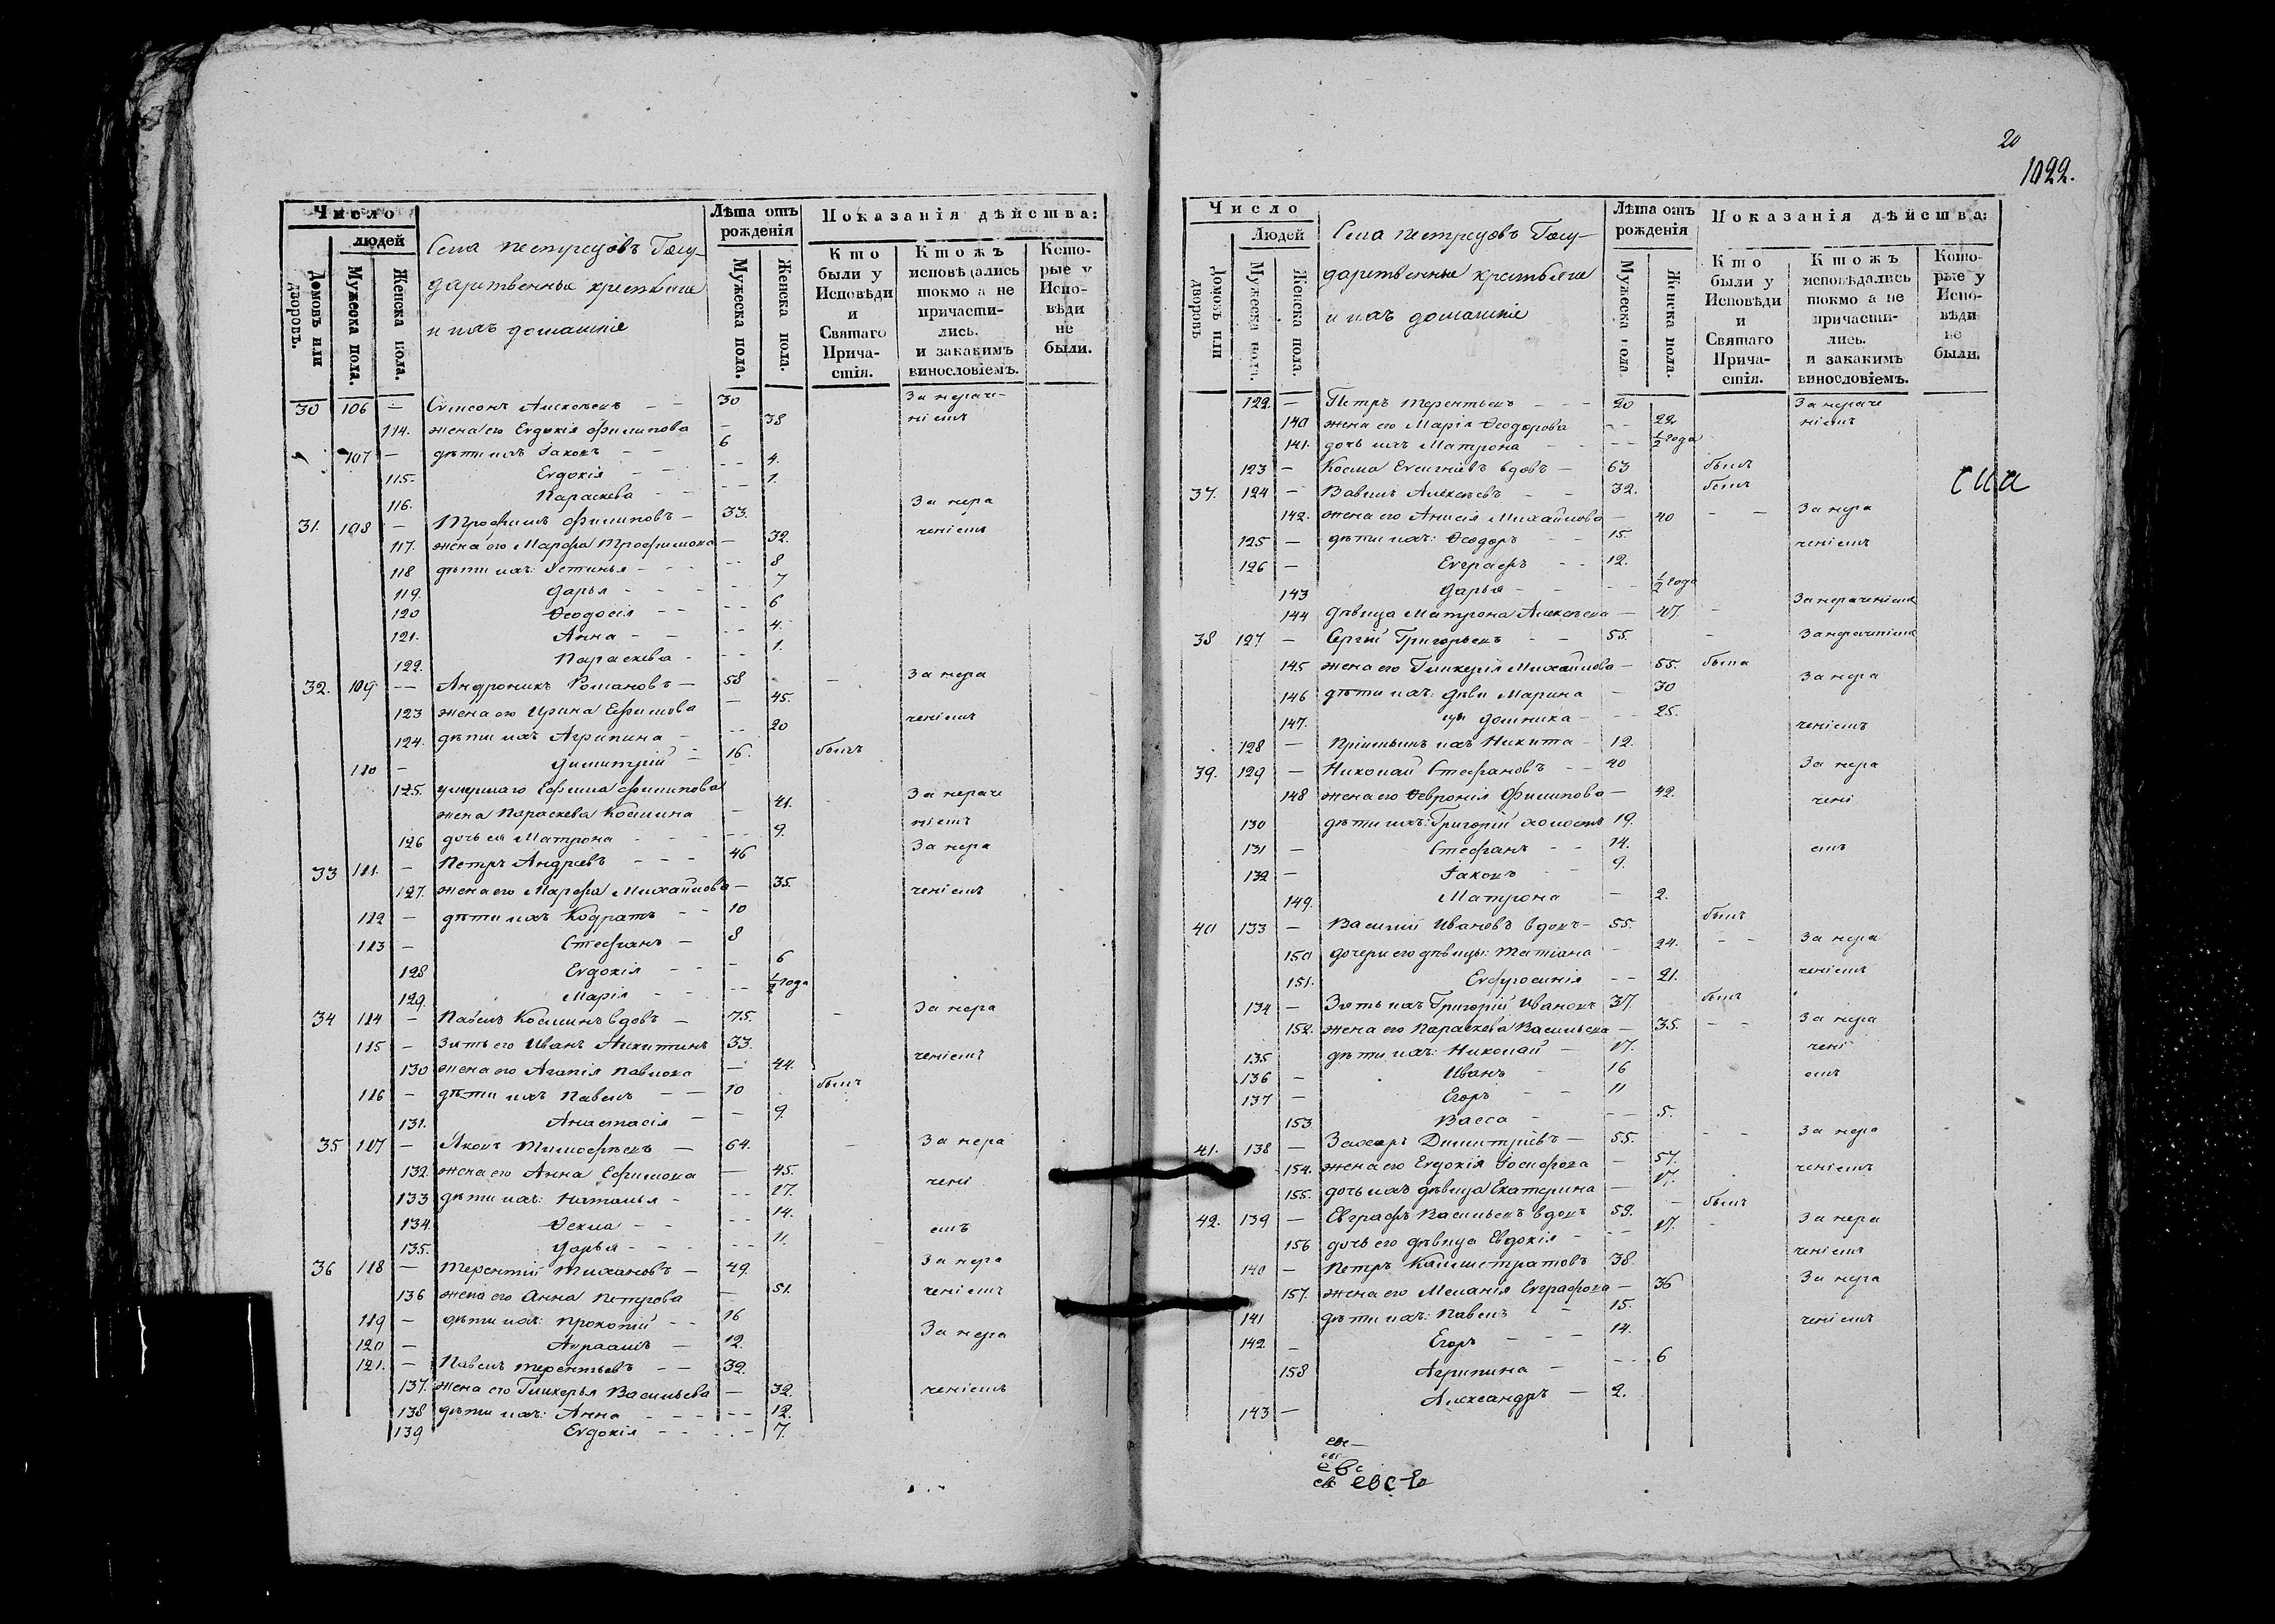 Число
людей
Домовъ или дворовъ.
Мужеска пола.
Женска пола.
Села Пестрецовъ Госу-
дарственные крестьяне
и ихъ домашніе
Лѣта отъ рожденія
Мужеска пола.
Женска пола.
Показанія дѣйства:
Кто были у Исповѣди и Святаго Прича-стія.
Ктожъ исповѣдались токмо а не причасти-лись. и закакимъ винословіемъ.
Кото-рые у Испо-вѣди не были.
30 106 — Симеонъ Алексѣевъ — 30 За нераче-
114. жена его Евдокія Филипова — 38 ніемъ
107 — дѣти ихъ Іаковъ — 6
115. Евдокія — 4.
116. Параскева — 1.
31. 108 — Трофимъ Филиповъ — 33. За нера
117. жена его Марфа Трофимова — 32. ченіемъ
118 дѣти ихъ: Устинья — 8
119. Дарья — 7
120 Ѳеодосія — 6
121. Анна — 4.
122. Параскева — 1.
32. 109 — Андроникъ Романовъ — 58 За нера
123 жена его Ирина Ефимова — 45.
124. дѣти ихъ Агрипина — 20 ченіемъ
110 — Димитрій — 16. былъ
125. умершаго Ефима Филипова
жена Параскева Космина — 41. За нераче
126 дочь ея Матрона — 9. ніемъ
33 111. — Петръ Андреевъ — 46 За нера
127. жена его Марфа Михайлова — 35. ченіемъ
112 — дѣти ихъ Кодратъ — 10
113 — Стефанъ — 8
128 Евдокія — 6
129. Марія — ½ года
34 114 — Павелъ Косминъ вдовъ — 75. За нера
115 — Зять его Иванъ Никитинъ 33.
130 жена его Агапія Павлова — 44. ченіемъ
116 — дѣти ихъ Павелъ — 10 былъ
131. Анастасія — 9.
35 117 — Яковъ Тимофѣевъ — 64. За нера
132. жена его Анна Ефимова — 45.
133 дѣти ихъ: Наталья — 17. чені
134. Ѳекла — 14.
135. Дарья — 11. емъ
36 118 — Терентій Тихановъ — 49. За нера
136 жена его Анна Петрова — 51. ченіемъ
119 — дѣти ихъ: Прокопій — 16
120 — Авраамъ — 12. За нера
121. — Павелъ Терентьевъ — 32.
137. жена его Гликерья Васильева — 32. ченіемъ
138 дѣти ихъ: Анна — 12.
139 Евдокія — 7.
20
1022.
Число
Людей
Домовъ или дворовъ
Мужеска пола.
Женска пола.
Села Пестрецовъ Госу-
дарственные крестьяне
и ихъ домашніе
Лѣта отъ рожденія
Мужеска пола.
Женска пола.
Показанія дѣйства:
Кто были у Исповѣди и Святаго Прича-стія.
Ктожъ исповѣдались токмо а не причасти-лись. и закакимъ винословіемъ.
Кото-рые у Испо-вѣди не были.
122. — Петръ Терентьевъ — 20 За нераче
140 жена его Марія Ѳеодорова — 22. ніемъ
141. дочь ихъ Матрона — ½ года
123 — Косма Евсигніевъ вдовъ — 63 былъ
37. 124 — Вавилъ Алексѣевъ — 32. былъ
142. жена его Анисія Михайлова — 40 За нера
125 — дѣти ихъ: Ѳеодоръ — 15. ченіемъ
126 — Евграфъ — 12.
143 Дарья — ½ года
144 дѣвица Матрона Алексѣева — 47. За нераченіемъ
38 127 — Сергій Григорьевъ — 55. За нераченіемъ
145 жена его Гликерія Михайлова — 55. была
146 дѣти ихъ: дѣви Марина — 30 За нера
147. Домника — 25.
128 — Пріемышъ ихъ Никита — 12. ченіемъ
39. 129 — Николай Стефановъ — 40 За нера
148 жена его Ѳевронія Филипова — 42. чені
130 дѣти ихъ: Григорій холостъ 19.
131 — Стефанъ — 14. емъ
132 — Іаковъ — 9.
149. Матрона — 2.
40 133 — Василій Ивановъ вдовъ — 55. былъ
150 дочери его дѣвицы: Татіана 24. За нера
151. Евфросинія — 21. ченіемъ
134 — Зять ихъ Григорій Ивановъ 37. былъ
152. жена его Параскева Васильева — 35. За нера
135 дѣти ихъ: Николай — 17. чені
136 — Иванъ — 16 емъ
137 — Егоръ — 11
153 Васса — 5.
41. 138 — Захаръ Димитріевъ — 55. За нера
154. жена его Евдокія Іосифова — 57. ченіемъ
155. дочь ихъ дѣвица Екатерина — 17.
42. 139 — Евграфъ Васильевъ вдовъ 59. былъ
156 дочь его дѣвица Евдокія — 17. За нера
140 — Петръ Калистратовъ 38. ченіемъ
157. жена его Меланія Евграфова — 36 За нера
141 дѣти ихъ: Павелъ — 15. ченіемъ
142 — Егоръ — 14.
158 Агрипина — 6
143 — Александръ — 2.
еве
евс